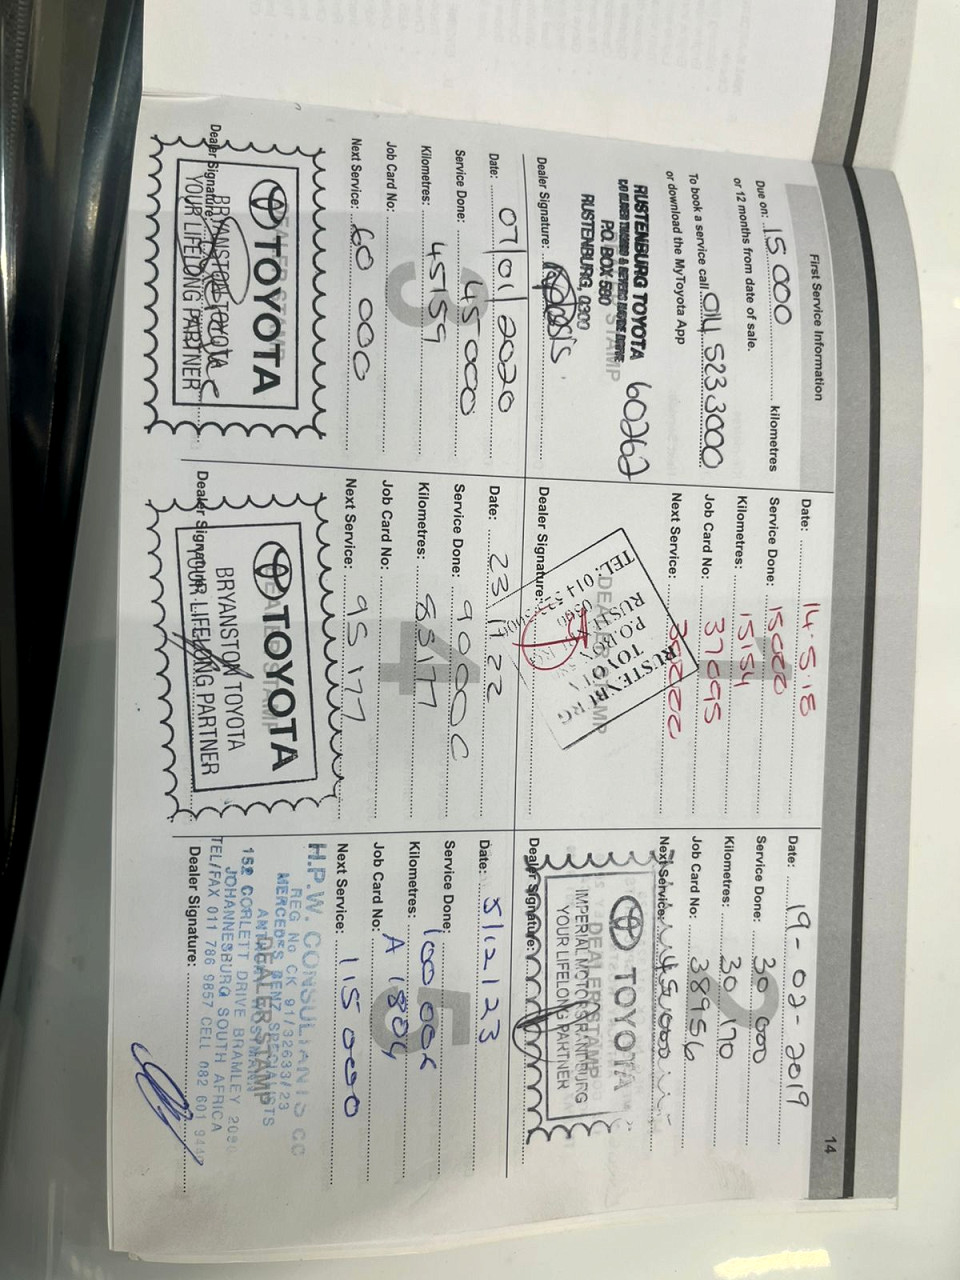 14
First Service Information
Due on: 15 000 kilometres
or 12 months from date of sale.
To book a service call 014 523 3000
or download the MyToyota App
RUSTENBURG TOYOTA 60262
P.O. BOX 580
RUSTENBURG, 0300
Dealer Signature:
Date: 14.5.18
Service Done: 15000
Kilometres: 15154
Job Card No: 37095
Next Service:
1
DEALER STAMP
RUSTENBURG
TOYOTA
P.O. BOX
TEL: 014
Dealer Signature:
Date: 19-02-2019
Service Done: 30 000
Kilometres: 30 170
Job Card No: 38956
Next Service: 45000
2
DEALER STAMP
TOYOTA
YOUR LIFELONG PARTNER
Dealer Signature:
Date: 07/01/2020
Service Done: 45000
Kilometres: 45159
Job Card No:
Next Service: 60 000
3
DEALER STAMP
TOYOTA
BRYANSTON TOYOTA
YOUR LIFELONG PARTNER
Dealer Signature:
Date:
Service Done: 90000
Kilometres: 88177
Job Card No:
Next Service: 95 177
4
DEALER STAMP
TOYOTA
BRYANSTON TOYOTA
YOUR LIFELONG PARTNER
Dealer Signature:
Date: 5/12/23
Service Done:
Kilometres:
Job Card No: A 1804
Next Service: 115 000
5
DEALER STAMP
H.P.W. CONSULTANTS CC
REG No CK 91/32633/23
MERCEDES BENZ SPECIALISTS
152 CORLETT DRIVE BRAMLEY
JOHANNESBURG SOUTH AFRICA
TEL/FAX 011 786 9857 CELL 082 601
Dealer Signature: